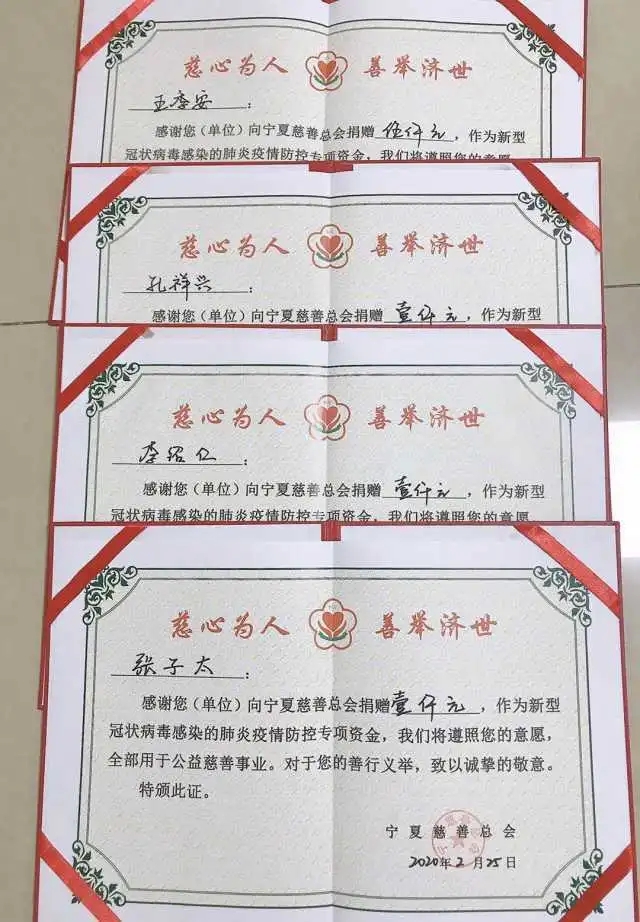 慈心为人 善举济世
王季安：
感谢您（单位）向宁夏慈善总会捐赠伍仟元，作为新型
冠状病毒感染的肺炎疫情防控专项资金，我们将遵照您的意愿
慈心为人 善举济世
孔祥兴：
感谢您（单位）向宁夏慈善总会捐赠壹仟元，作为新型
慈心为人 善举济世
李绍仁：
感谢您（单位）向宁夏慈善总会捐赠壹仟元，作为新型
冠状病毒感染的肺炎疫情防控专项资金，我们将遵照您的意愿
慈心为人 善举济世
张子太：
感谢您（单位）向宁夏慈善总会捐赠壹仟元，作为新型
冠状病毒感染的肺炎疫情防控专项资金，我们将遵照您的意愿，
全部用于公益慈善事业。对于您的善行义举，致以诚挚的敬意。
特颁此证。
宁夏慈善总会
2020年2月25日